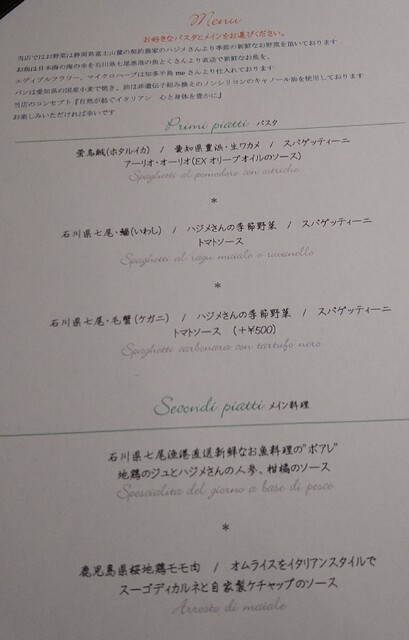 Menu
お好きなパスタとメインをお選びください。
当店ではお野菜は静岡県富士山麓の契約農家のハジメさんより季節の新鮮なお野菜を頂いております
お魚は日本海の海の幸を石川県七尾漁港の魚とくさんより直送で新鮮なお魚を、
エディブルフラワー、マイクロハーブは知多半島 me さんより仕入れております
パンは愛知県の国産小麦で焼き、油は非遺伝子組み換えのノンシリコンのキャノール油を使用しております
当店のコンセプト『自然が紡ぐイタリアン 心と身体を豊かに』
お楽しみいただければ幸いです
Primi piatti パスタ
蛍烏賊(ホタルイカ) / 愛知県豊浜・生ワカメ / スパゲッティーニ
アーリオ・オーリオ(EXオリーブオイルのソース)
Spaghetti al pomodoro con ostriche
*
石川県七尾・鰯(いわし) / ハジメさんの季節野菜 / スパゲッティーニ
トマトソース
Spaghetti al ragu maiale o ravanello
*
石川県七尾・毛蟹(ケガニ) / ハジメさんの季節野菜 / スパゲッティーニ
トマトソース (+¥500)
Spaghetti carbonara con tartufo nero
Secondi piatti メイン料理
石川県七尾漁港直送新鮮なお魚料理の"ポアレ"
地鶏のジュとハジメさんの人参、柑橘のソース
Spescialita del giorno a base di pesce
*
鹿児島県桜地鶏モモ肉 / オムライスをイタリアンスタイルで
スーゴディカルネと自家製ケチャップのソース
Arrosto di maiale